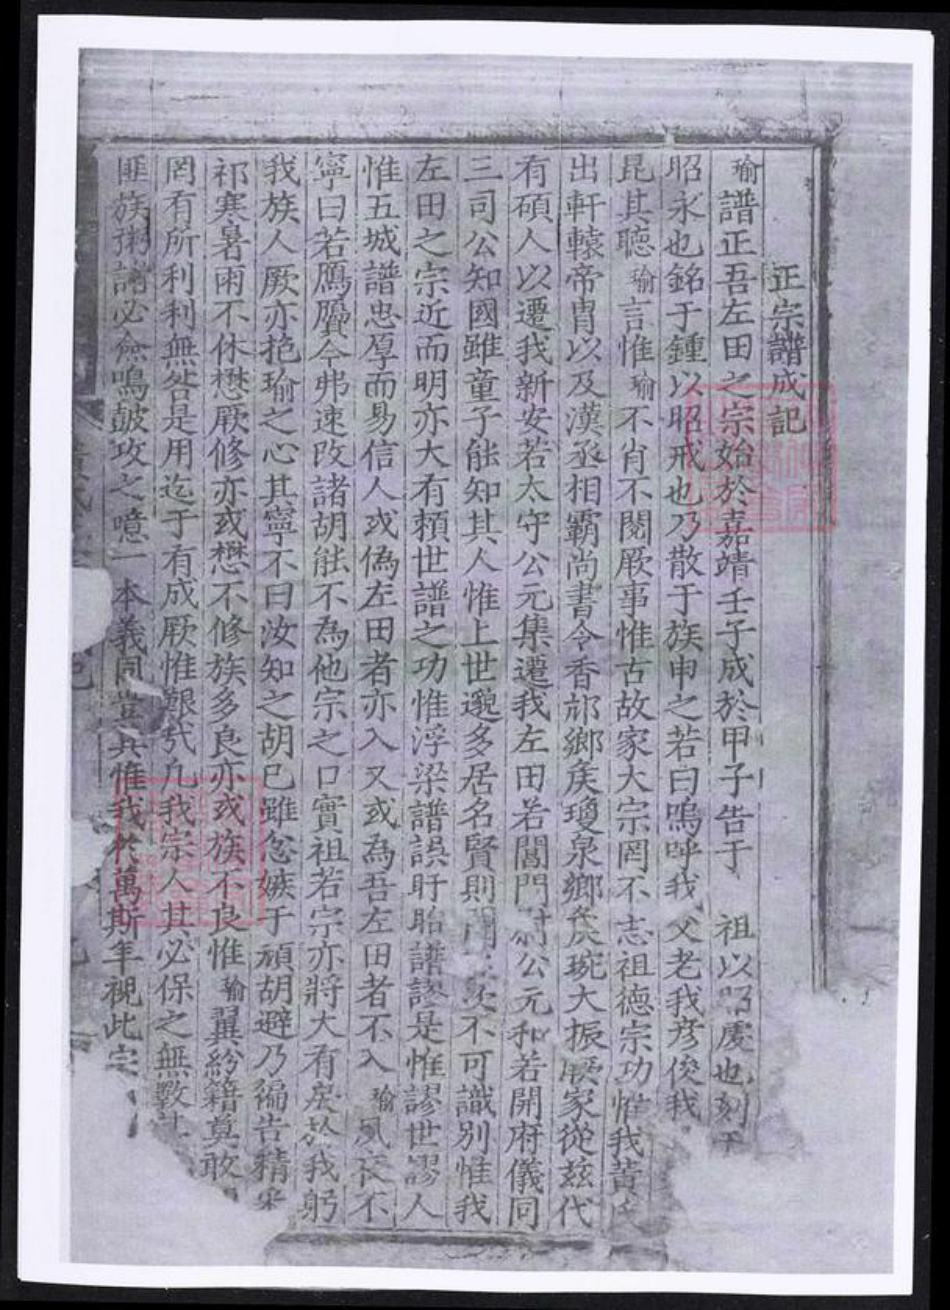 正宗譜成記
瑜譜正吾左田之宗始於嘉靖壬子成於甲子告于 祖以昭慶也刻于
昭永也銘于鍾以昭戒也乃散于族申之若曰嗚呼我父老我彥俊我
昆其聽瑜言惟瑜不肖不閱厥事惟古故家大宗罔不志祖德宗功惟我黃氏
出軒轅帝胄以及漢丞相霸尚書令香邟鄉矦瓊泉鄉矦琬大振厥家從茲代
有碩人以遷我新安若太守公元集遷我左田若閶門尉公元和若開府儀同
三司公知國雖童子能知其人惟上世邈多居名賢則不可識別惟我
左田之宗近而明亦大有賴世譜之功惟浮梁譜誤盱眙譜謬是惟謬世謬人
惟五城譜忠厚而易信人或偽左田者亦入又或為吾左田者不入瑜夙夜不
寧曰若鴈贗今弗速改諸胡能不為他宗之口實祖若宗亦將大有戾於我躬
我族人厥亦抱瑜之心其寧不曰汝知之胡已雖忿嫉于頑胡避乃徧告精
祁寒暑雨不休懋厥修亦或懋不修族多良亦或族不良惟瑜翼紛籍莫敢
罔有所利利無咎是用迄于有成厥惟艱哉凡我宗人其必保之無斁
匪族粥譜必僉鳴皷攻之噫一本義同惟我於萬斯年視此宗